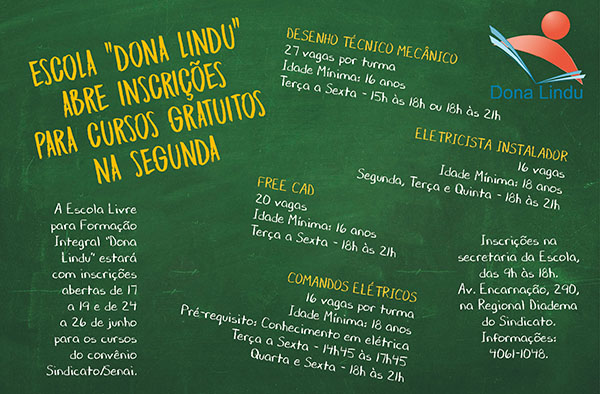 ESCOLA "DONA LINDU"
ABRE INSCRIÇÕES
PARA CURSOS GRATUITOS
NA SEGUNDA
A Escola Livre
para Formação
Integral "Dona
Lindu" estará
com inscrições
abertas de 17
a 19 e de 24
a 26 de junho
para os cursos
do convênio
Sindicato/Senai.
DESENHO TÉCNICO MECÂNICO
27 vagas por turma
Idade Mínima: 16 anos
Terça a Sexta - 15h às 18h ou 18h às 21h
Dona Lindu
ELETRICISTA INSTALADOR
16 vagas
Idade Mínima: 18 anos
Segunda, Terça e Quinta - 18h às 21h
FREE CAD
20 vagas
Idade Mínima: 16 anos
Terça a Sexta - 18h às 21h
COMANDOS ELÉTRICOS
16 vagas por turma
Idade Mínima: 18 anos
Pré-requisito: Conhecimento em elétrica
Terça a Sexta - 14h45 às 17h45
Quarta e Sexta - 18h às 21h
Inscrições na
secretaria da Escola,
das 9h às 18h.
Av. Encarnação, 290,
na Regional Diadema
do Sindicato.
Informações:
4061-1048.